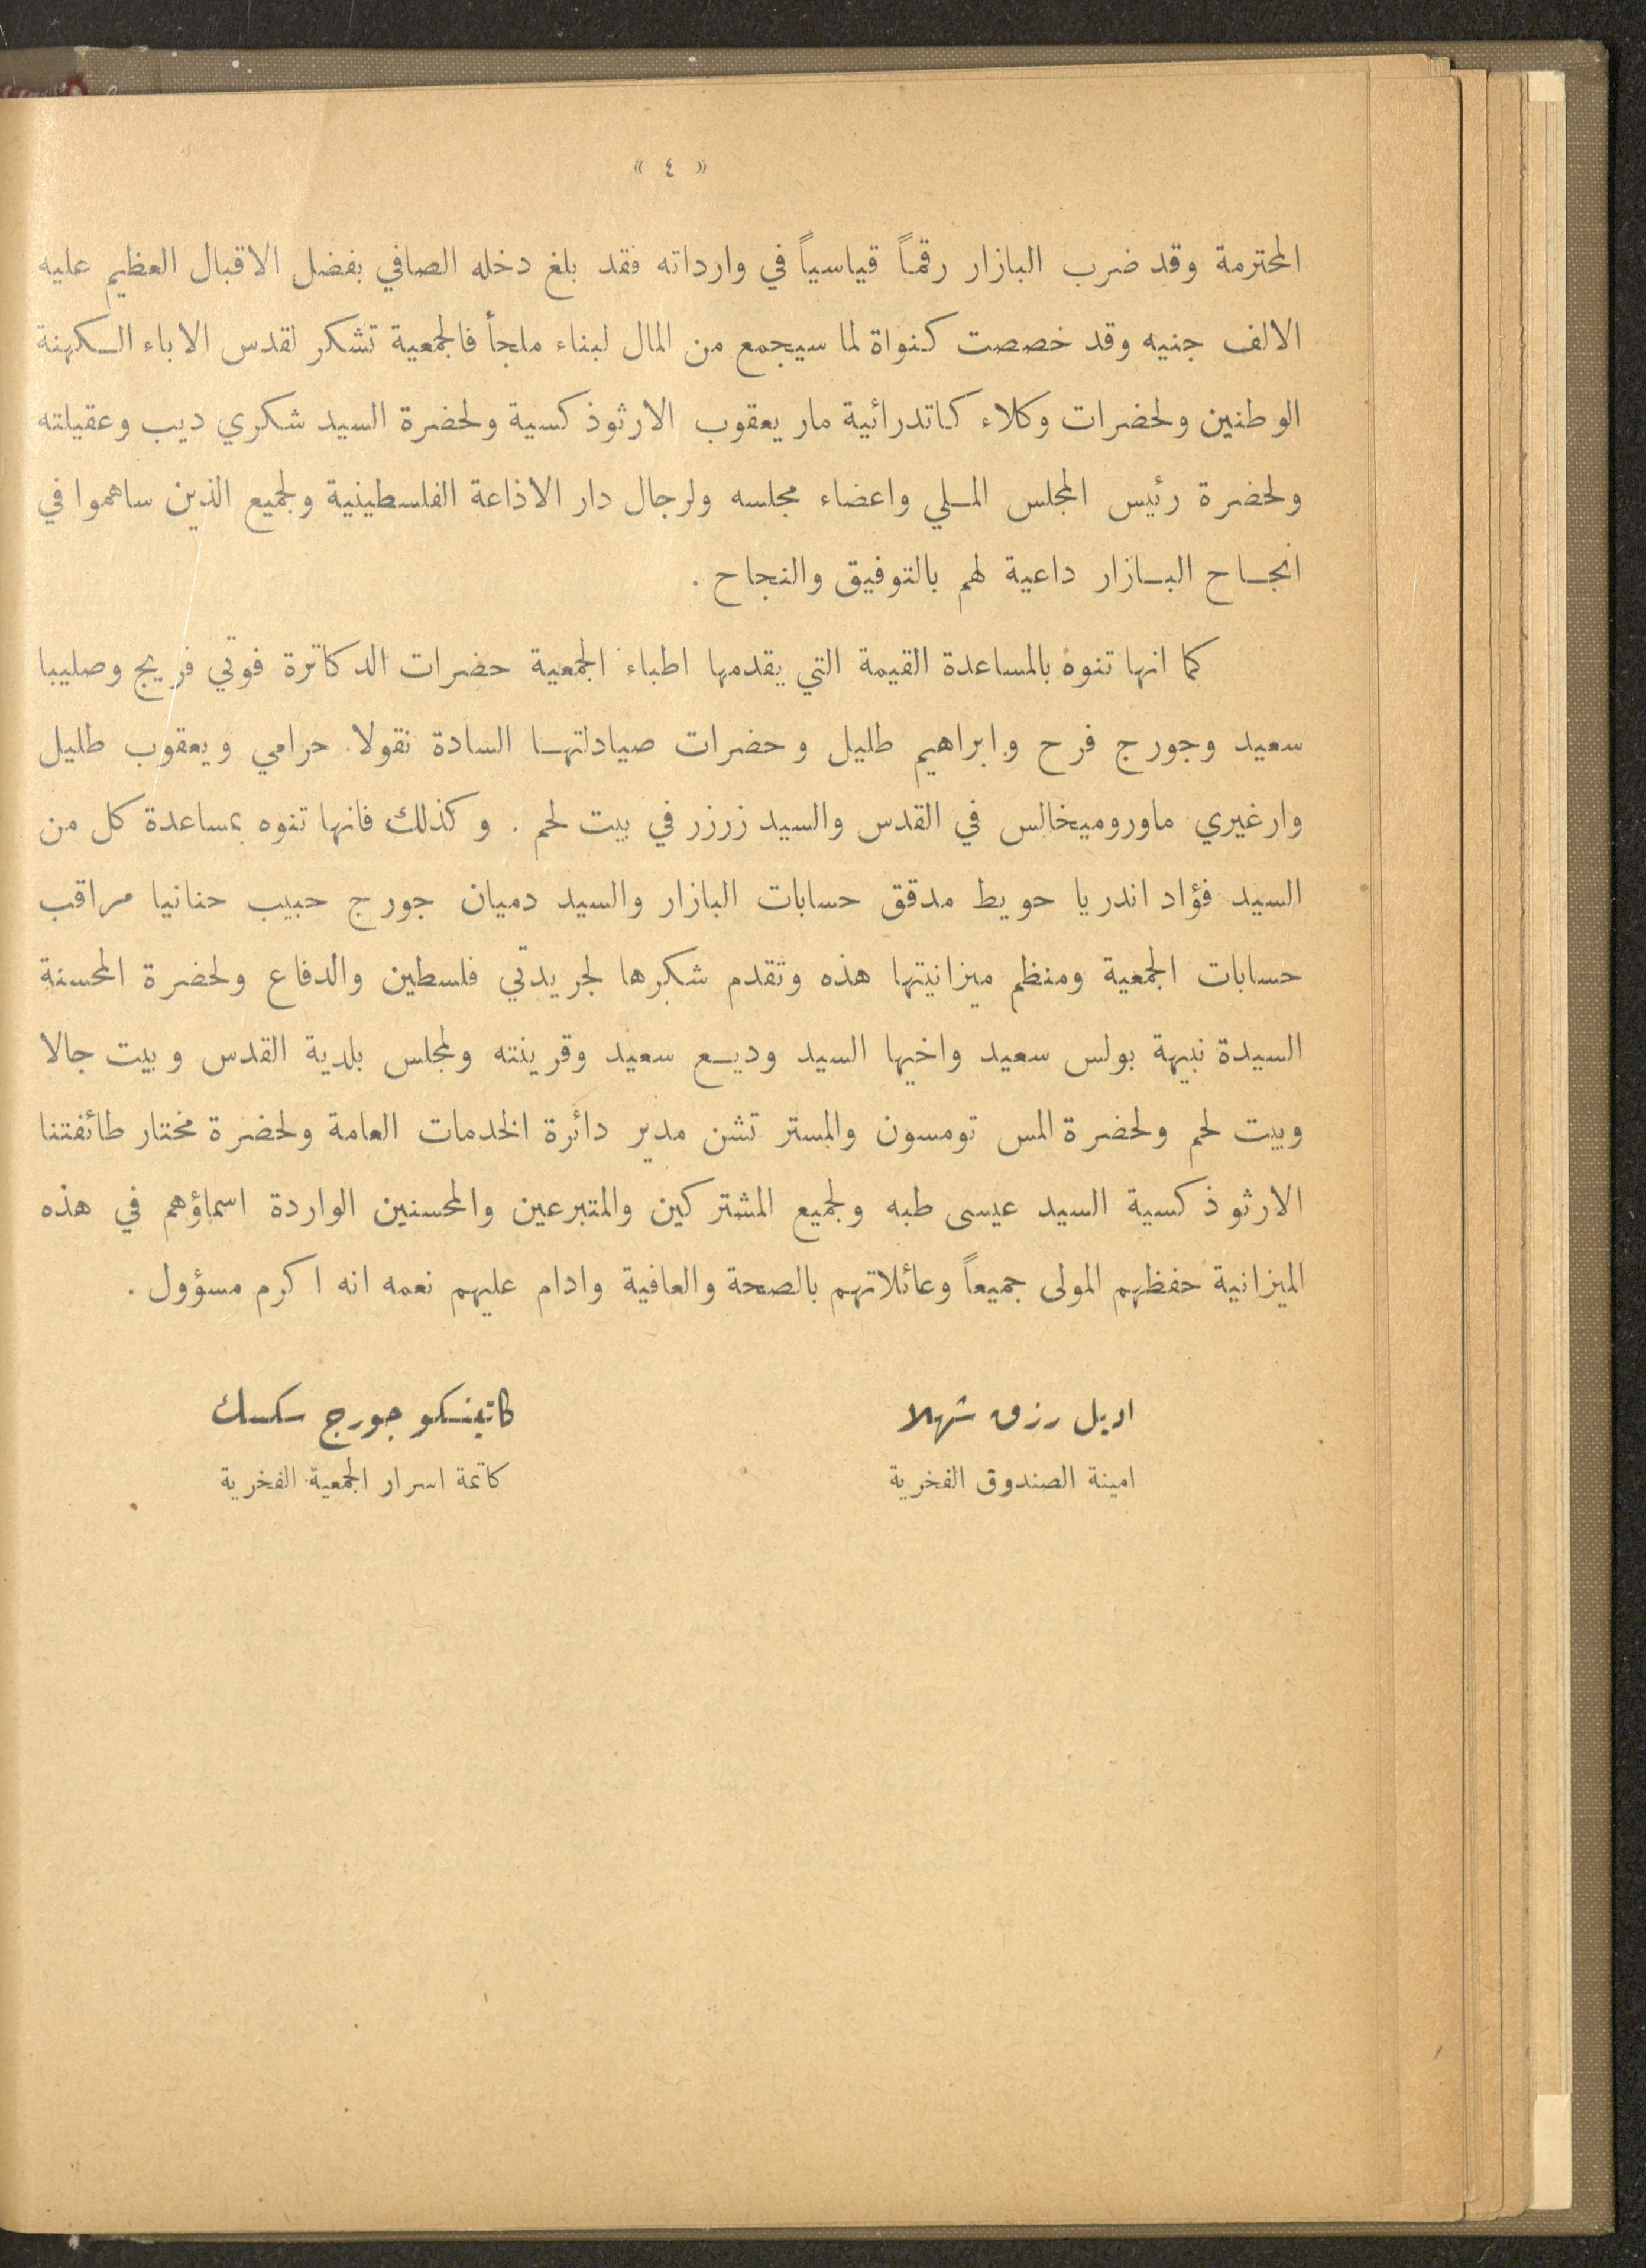 « ٤ »
المحترمة وقد ضرب البازار رقماً قياسياً في وارداته فقد بلغ دخله الصافي بفضل الاقبال العظيم عليه
الالف جنيه وقد خصصت كنواة لما سيجمع من المال لبناء ملجأ فالجمعية تشكر لقدس الاباء الكهنة
الوطنين ولحضرات وكلاء كاتدرائية مار يعقوب الارثوذكسية ولحضرة السيد شكري ديب وعقيلته
ولحضرة رئيس المجلس الملي واعضاء مجلسه ولرجال دار الاذاعة الفلسطينية ولجميع الذين ساهموا في
انجاح البازار داعية لهم بالتوفيق والنجاح .
كما انها تنوه بالمساعدة القيمة التي يقدمها اطباء الجمعية حضرات الدكاترة فوتي فريج وصليبا
سعيد وجورج فرح وابراهيم طليل وحضرات صيادلتها السادة نقولا حرامي ويعقوب طليل
وارغيري ماوروميخالس في القدس والسيد زرزر في بيت لحم . وكذلك فانها تنوه بمساعدة كل من
السيد فؤاد اندريا حويط مدقق حسابات البازار والسيد دميان جورج حبيب حنانيا مراقب
حسابات الجمعية ومنظم ميزانيتها هذه وتقدم شكرها لجريدتي فلسطين والدفاع ولحضرة المحسنة
السيدة نبيهة بولس سعيد واخيها السيد وديع سعيد وقرينته ولمجلس بلدية القدس وبيت جالا
وبيت لحم ولحضرة المس تومسون والمستر تشن مدير دائرة الخدمات العامة ولحضرة مختار طائفتنا
الارثوذكسية السيد عيسى طبه ولجميع المشتركين والمتبرعين والمحسنين الواردة اسماؤهم في هذه
الميزانية حفظهم المولى جميعاً وعائلاتهم بالصحة والعافية وادام عليهم نعمه انه اكرم مسؤول .
اديل رزق شهلا
كاتينكو جورج سكسك
امينة الصندوق الفخرية
كاتمة اسرار الجمعية الفخرية